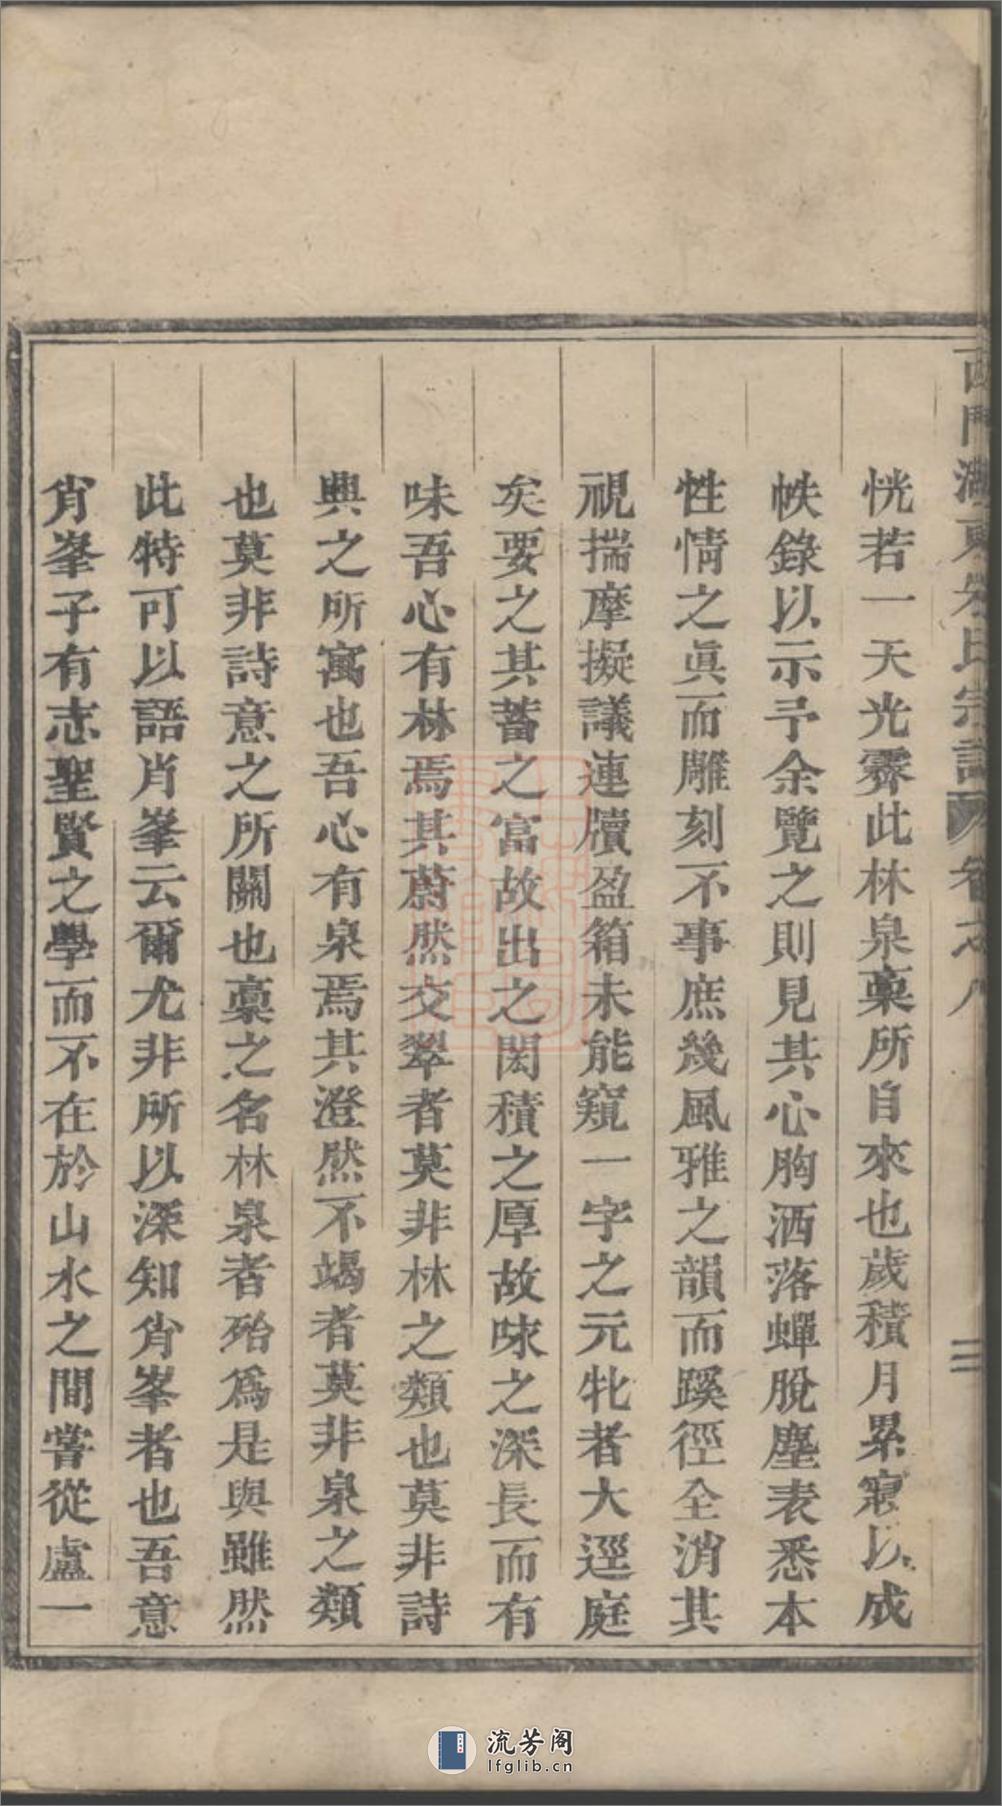 恍若一天光霽此林泉稾所自來也歲積月累寖以成
帙錄以示予余覽之則見其心胸洒落蟬脫塵表悉本
性情之眞而雕刻不事庶幾風雅之韻而蹊徑全消其
視揣摩擬議連牘盈箱未能窺一字之元牝者大逕庭
矣要之其蓄之富故出之閎積之厚故味之深長而有
味吾心有林焉其蔚然交翠者莫非林之類也莫非詩
興之所寓也吾心有泉焉其澄然不竭者莫非泉之類
也莫非詩意之所關也稾之名林泉者殆爲是與雖然
此特可以語肖峯云爾尤非所以深知肖峯者也吾意
肖峯子有志聖賢之學而不在於山水之間嘗從盧一
流芳阁
lfglib.cn